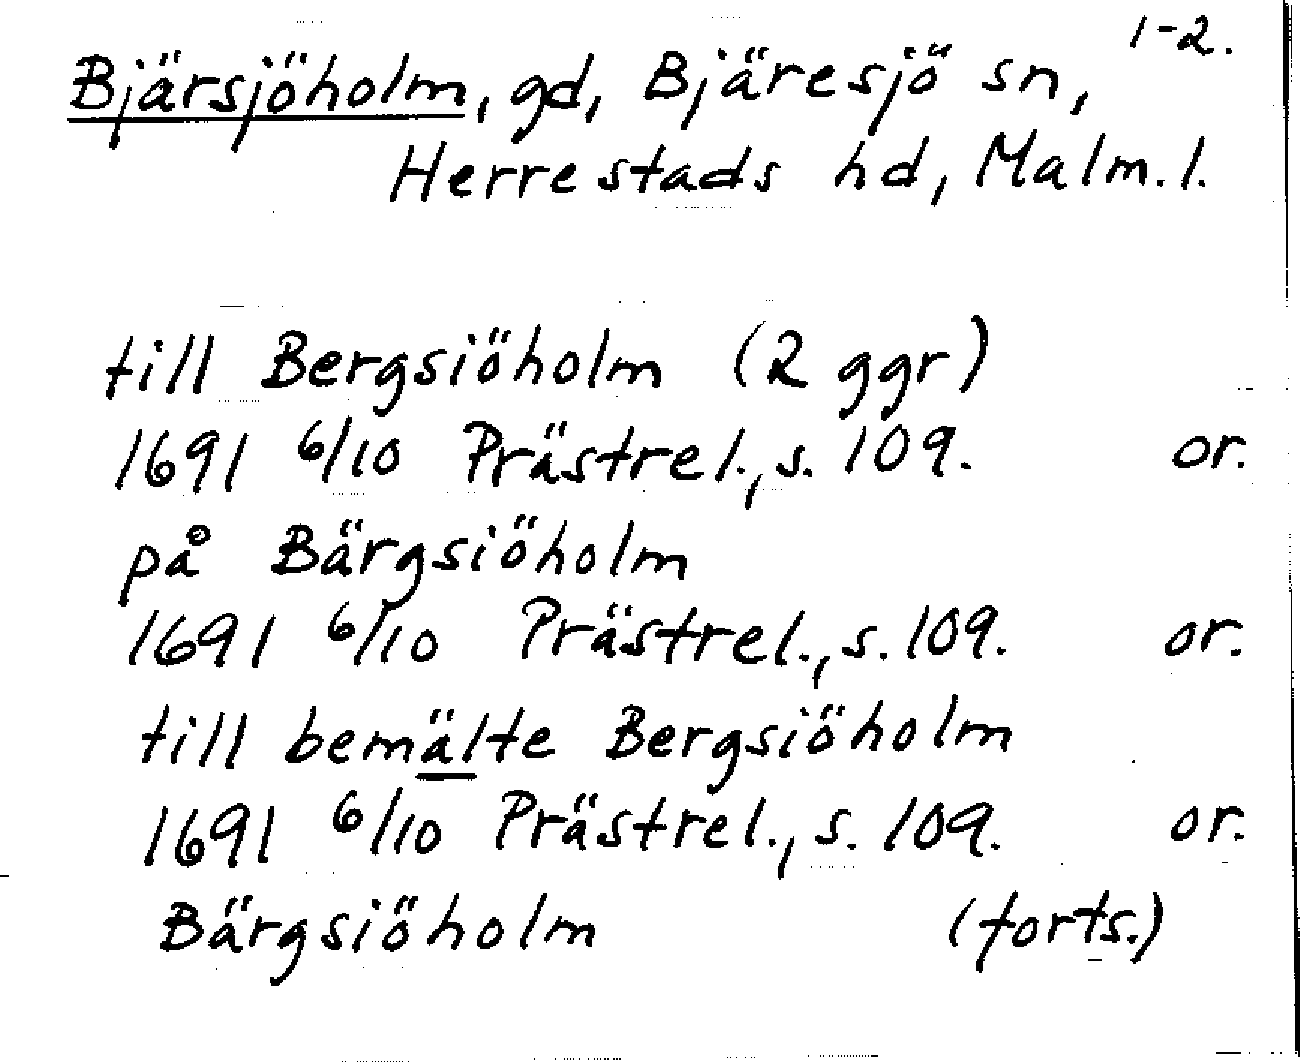 1-2.
Bjärsjöholm, gd, Bjäresjö sn,
Herrestads hd, Malm. l.
till Bergsiöholm (2 ggr)
1691 6/10 Prästrel., s. 109. or.
på Bärgsiöholm
1691 6/10 Prästrel., s. 109. or.
till bemälte Bergsiöholm
1691 6/10 Prästrel., s. 109. or.
Bärgsiöholm (forts.)